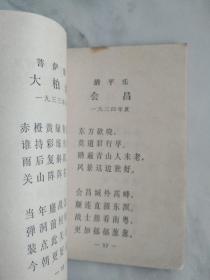 菩萨
大柏
一九三三年
赤橙黄绿
谁持彩练
雨后复斜
关山阵阵
当年鏖战
弹洞前村
装点此关
今朝更好
清平乐
会昌
一九三四年夏
东方欲晓，
莫道君行早。
踏遍青山人未老，
风景这边独好。
会昌城外高峰，
颠连直接东溟。
战士指看南粤，
更加郁郁葱葱。